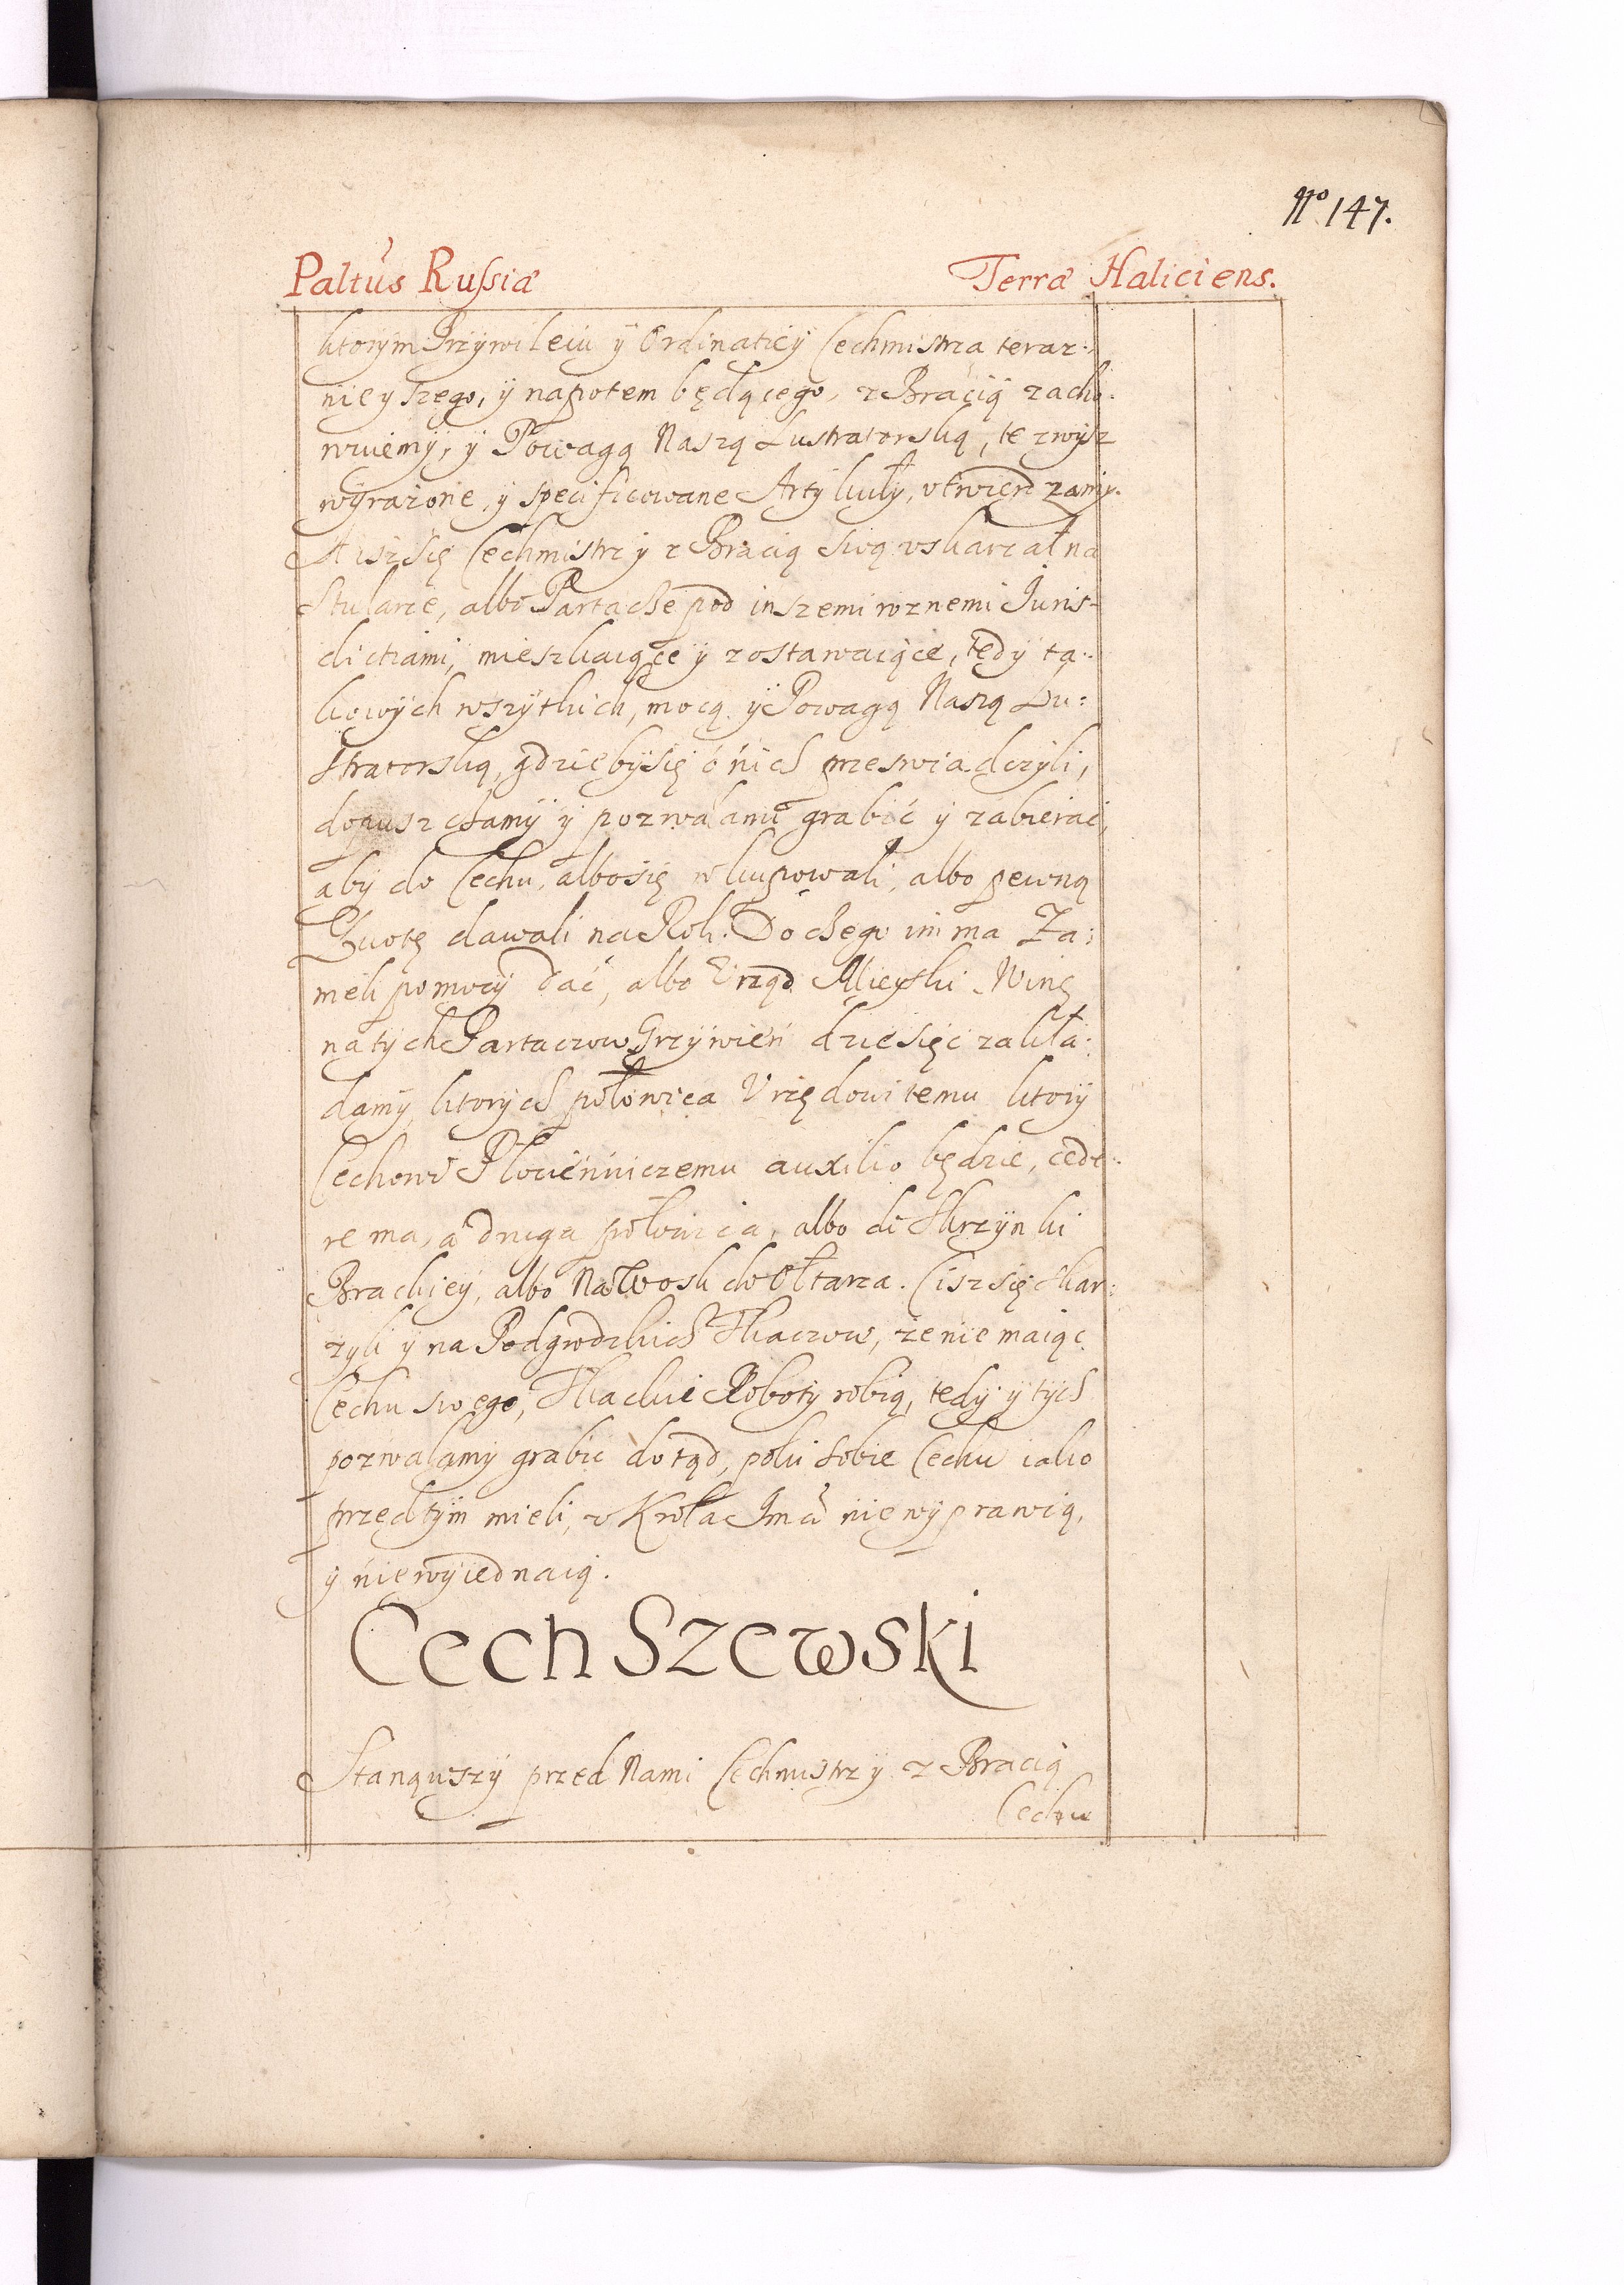 No 147.
Paltús Russiæ Terræ Haliciens.
ktorym Przywileiu ÿ Ordinatiey Cechmistrza teraz:
nieyszego, ÿ napotem będącego, z Bracią zacho:
wuiemy, ÿ Powagą Naszą Lustratorską, te zwysz
wyrażone, ÿ specificowane Artykuły, utwierdzamy.
A isz się Cechmistrz ÿ z Bracią swą uskarzał na
Stularze, albo Partacze pod inszemi roznemi Iuris-
dictiami, mieszkaiące ÿ zostawaiące, tedy ta:
kowych wszytkich, mocą ÿ Powagą Naszą Lu:
stratorską, gdzieby się o nich przeswiadczyli,
dopuszczamy ÿ pozwalamÿ grabić ÿ zabierać,
aby do Cechu, albo się wkupowali, albo pewną
Quotę dawali na Rok. Do czego im ma Za:
mek pomocy dać, albo Urząd Mieyski. Winę
na tych Partaczow Grzywień dziesięć zakła:
damy, ktorych połowica Urzędowi temu ktory
Cechowi Płocienniczemu auxilio będzie, cede:
re ma, a druga połowica, albo do Skrzynki
Brackiey, albo Na Wosk do Ołtarza. Ci isz się skar:
zyli ÿ na Podgrodzkich Tkaczow, że nie maiąc
Cechu swego, Tkackie Roboty robią, tedy ÿ tych
pozwalamy grabic dotąd, poki sobie Cechu iako
przedtym mieli, u Krola Jmci nie wyprawią,
ÿ nie wyiednaią.
Cech Szewski
Stanąwszy przed Nami Cechmistrz ÿ z Bracią
Cechu